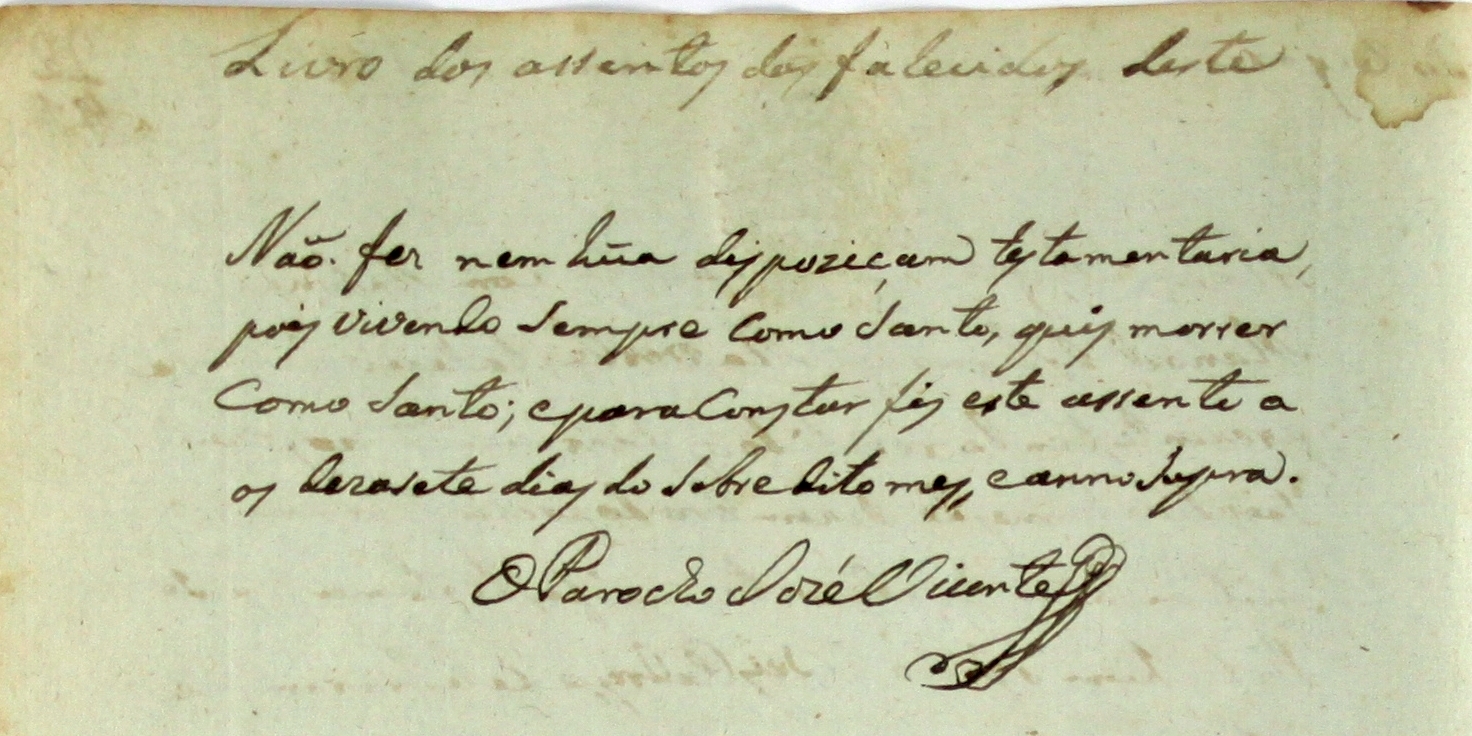 Livro dos assentos dos falecidos deste
Não fez nem hũa dispozição testamentaria,
pois vivendo sempre como Santo, quis morrer
Como Santo; e para Constar fis este assento a
os dezasete dias do sobredito mes, e anno supra.
O Parocho José Vicente